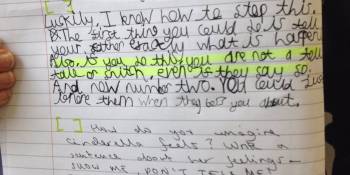 [ ]
Luckily, I know how to stop this.
The first thing you could do is tell
your father exactly what is happen
Also, if you do this you are not a tell
tall or snitch, even is they say so.
And now number two. You could just
ignore them when they boss you about.
[ ] How do you imagine
cinderella feels? Write a
sentence about her feelings –
SHOW ME, DON'T TELL ME!